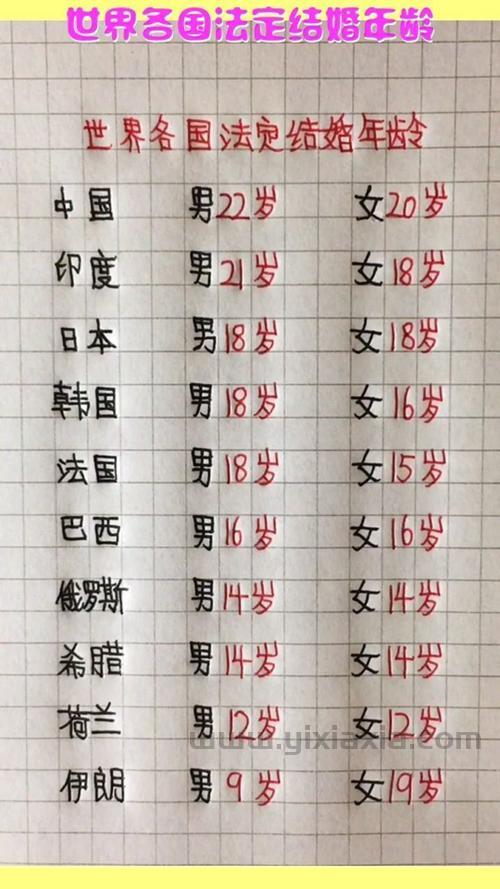 世界各国法定结婚年龄
世界各国法定结婚年龄
中国 男22岁 女20岁
印度 男21岁 女18岁
日本 男18岁 女18岁
韩国 男18岁 女16岁
法国 男18岁 女15岁
巴西 男16岁 女16岁
俄罗斯 男14岁 女14岁
希腊 男14岁 女14岁
荷兰 男12岁 女12岁
www.yixiaxia.com
伊朗 男9岁 女19岁